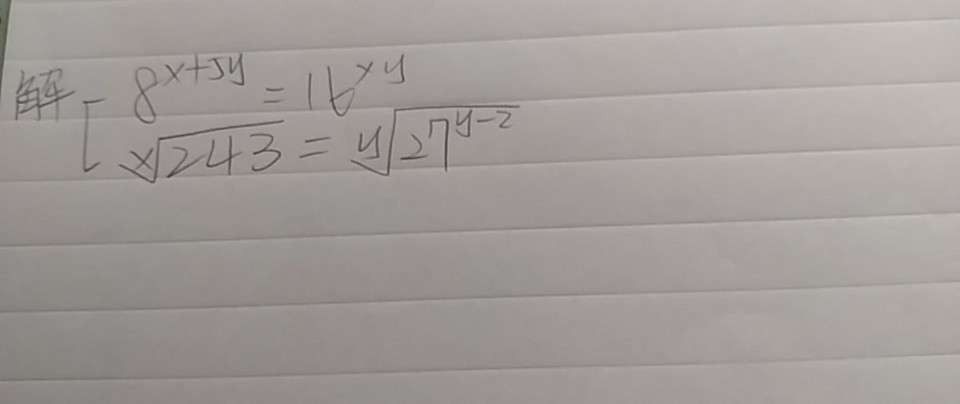 解 [ 8^{x+5y} = 16^{xy}
\sqrt[x]{243} = \sqrt[y]{27^{y-2}}